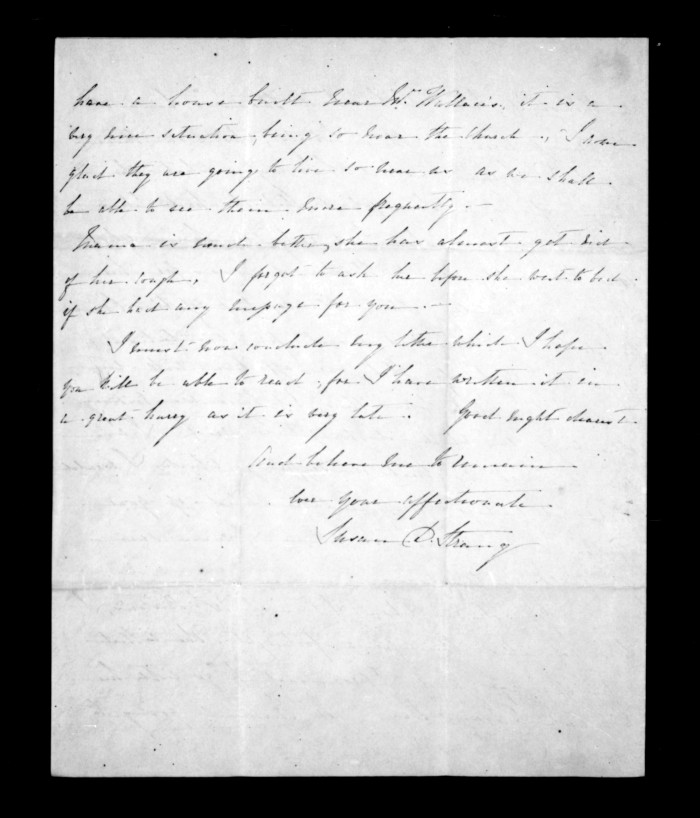 have a house built near Mr. Wallace's, it is a
very nice situation, being so near the Church, I am
glad they are going to live so near us as we shall
be able to see them more frequently. -
Mama is much better, she has almost got rid
of her cough, I forgot to ask her before she went to bed
if she had any message for you -
I must now conclude my letter which I hope
you will be able to read, for I have written it in
a great hurry as it is very late. Good night dearest
And believe me to remain
Ever your affectionate
Susan D. Strang